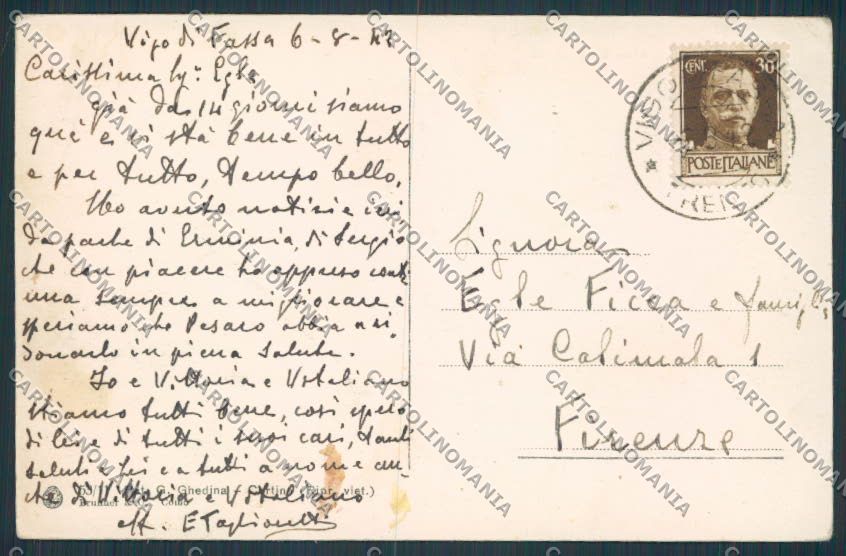 Vigo di Fassa 6-8-42
Carissima Sig.ª Egle
già da 14 giorni siamo
quì e si stà bene in tutto
e per tutto, tempo bello.
Ho avuto notizie ieri
da parte di Erminia, di Sergio
che con piacere ho appreso conti
nua sempre a migliorare e
speriamo che Pesaro abbia a ri-
donarlo in piena salute.
Io e Vittoria e Vitaliano
stiamo tutti bene, così spero
di lei e di tutti i suoi cari, tanti
saluti a lei e a tutti a nome an-
che di Vittoria e Vitaliano
aff. E Taglionetti
G. Ghedina - Cortina (Ripr. viet.)
Brunner & C. Como
CENT. 30
POSTE ITALIANE
VIGO
TRENTO
Signora
Egle Ficca e famiglia
Via Calimala 1
Firenze
CARTOLINOMANIA